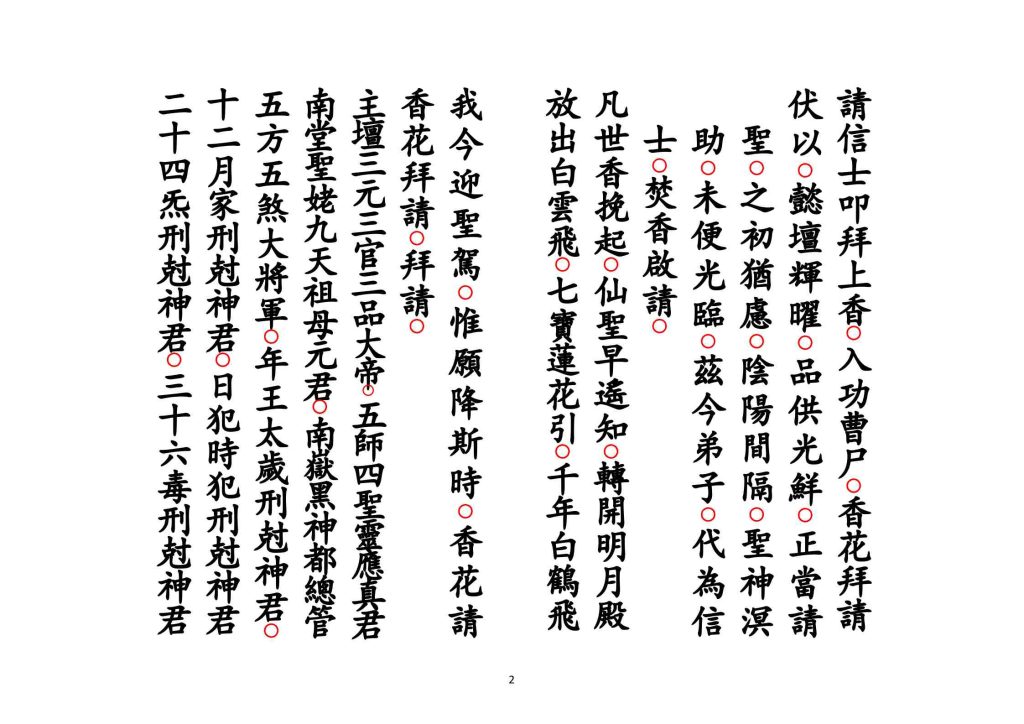 請信士叩拜上香○入功曹尸○香花拜請
伏以○懿壇輝曜○品供光鮮○正當請
聖○之初猶慮○陰陽間隔○聖神溟
助○未便光臨○茲今弟子○代為信
士○焚香啟請○
凡世香挽起○仙聖早遙知○轉開明月殿
放出白雲飛○七寶蓮花引○千年白鶴飛
我今迎聖駕○惟願降斯時○香花請
香花拜請○拜請○
主壇三元三官三品大帝○五師四聖靈應真君
南堂聖姥九天祖母元君○南嶽黑神都總管
五方五煞大將軍○年王太歲刑尅神君○
十二月家刑尅神君○日犯時犯刑尅神君
二十四炁刑尅神君○三十六毒刑尅神君
2